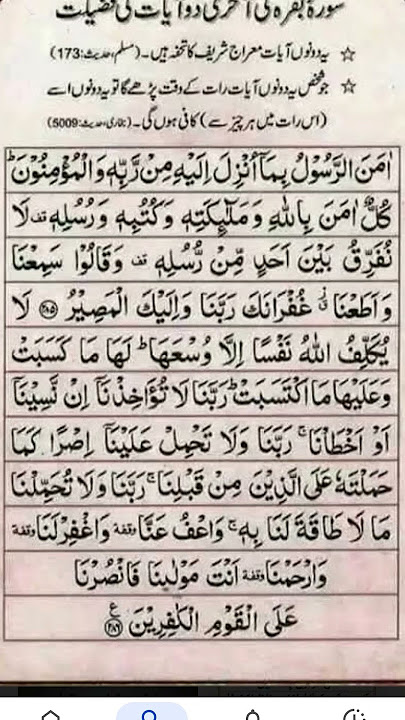 سورۂ بقرہ کی آخری دو آیات کی فضیلت
☆ یہ دونوں آیات معراج شریف کا تحفہ ہیں۔ (مسلم، حدیث:173)
☆ جو شخص یہ دونوں آیات رات کے وقت پڑھے گا تو یہ دونوں اسے
(اس رات میں ہر چیز سے) کافی ہوں گی۔ (بخاری، حدیث:5009)
اٰمَنَ الرَّسُوْلُ بِمَاۤ اُنْزِلَ اِلَیْهِ مِنْ رَّبِّهٖ وَالْمُؤْمِنُوْنَ ؕ
كُلٌّ اٰمَنَ بِاللّٰهِ وَمَلٰٓئِكَتِهٖ وَكُتُبِهٖ وَرُسُلِهٖ قف لَا
نُفَرِّقُ بَیْنَ اَحَدٍ مِّنْ رُّسُلِهٖ قف وَقَالُوْا سَمِعْنَا
وَاَطَعْنَا ق٘ غُفْرَانَكَ رَبَّنَا وَاِلَیْكَ الْمَصِیْرُ ﴿۲۸۵﴾ لَا
یُكَلِّفُ اللّٰهُ نَفْسًا اِلَّا وُسْعَهَا ؕ لَهَا مَا كَسَبَتْ
وَعَلَیْهَا مَا اكْتَسَبَتْ ؕ رَبَّنَا لَا تُؤَاخِذْنَاۤ اِنْ نَّسِیْنَاۤ
اَوْ اَخْطَاْنَا ۚ رَبَّنَا وَلَا تَحْمِلْ عَلَیْنَاۤ اِصْرًا كَمَا
حَمَلْتَهٗ عَلَی الَّذِیْنَ مِنْ قَبْلِنَا ۚ رَبَّنَا وَلَا تُحَمِّلْنَا
مَا لَا طَاقَةَ لَنَا بِهٖ ۚ وَاعْفُ عَنَّا وقفة وَاغْفِرْ لَنَا وقفة
وَارْحَمْنَا وقفة اَنْتَ مَوْلٰىنَا فَانْصُرْنَا
عَلَی الْقَوْمِ الْكٰفِرِیْنَ ﴿۲۸۶﴾ ع